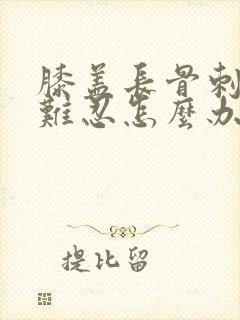 膝盖長骨刺
難忍怎麼办
提比留